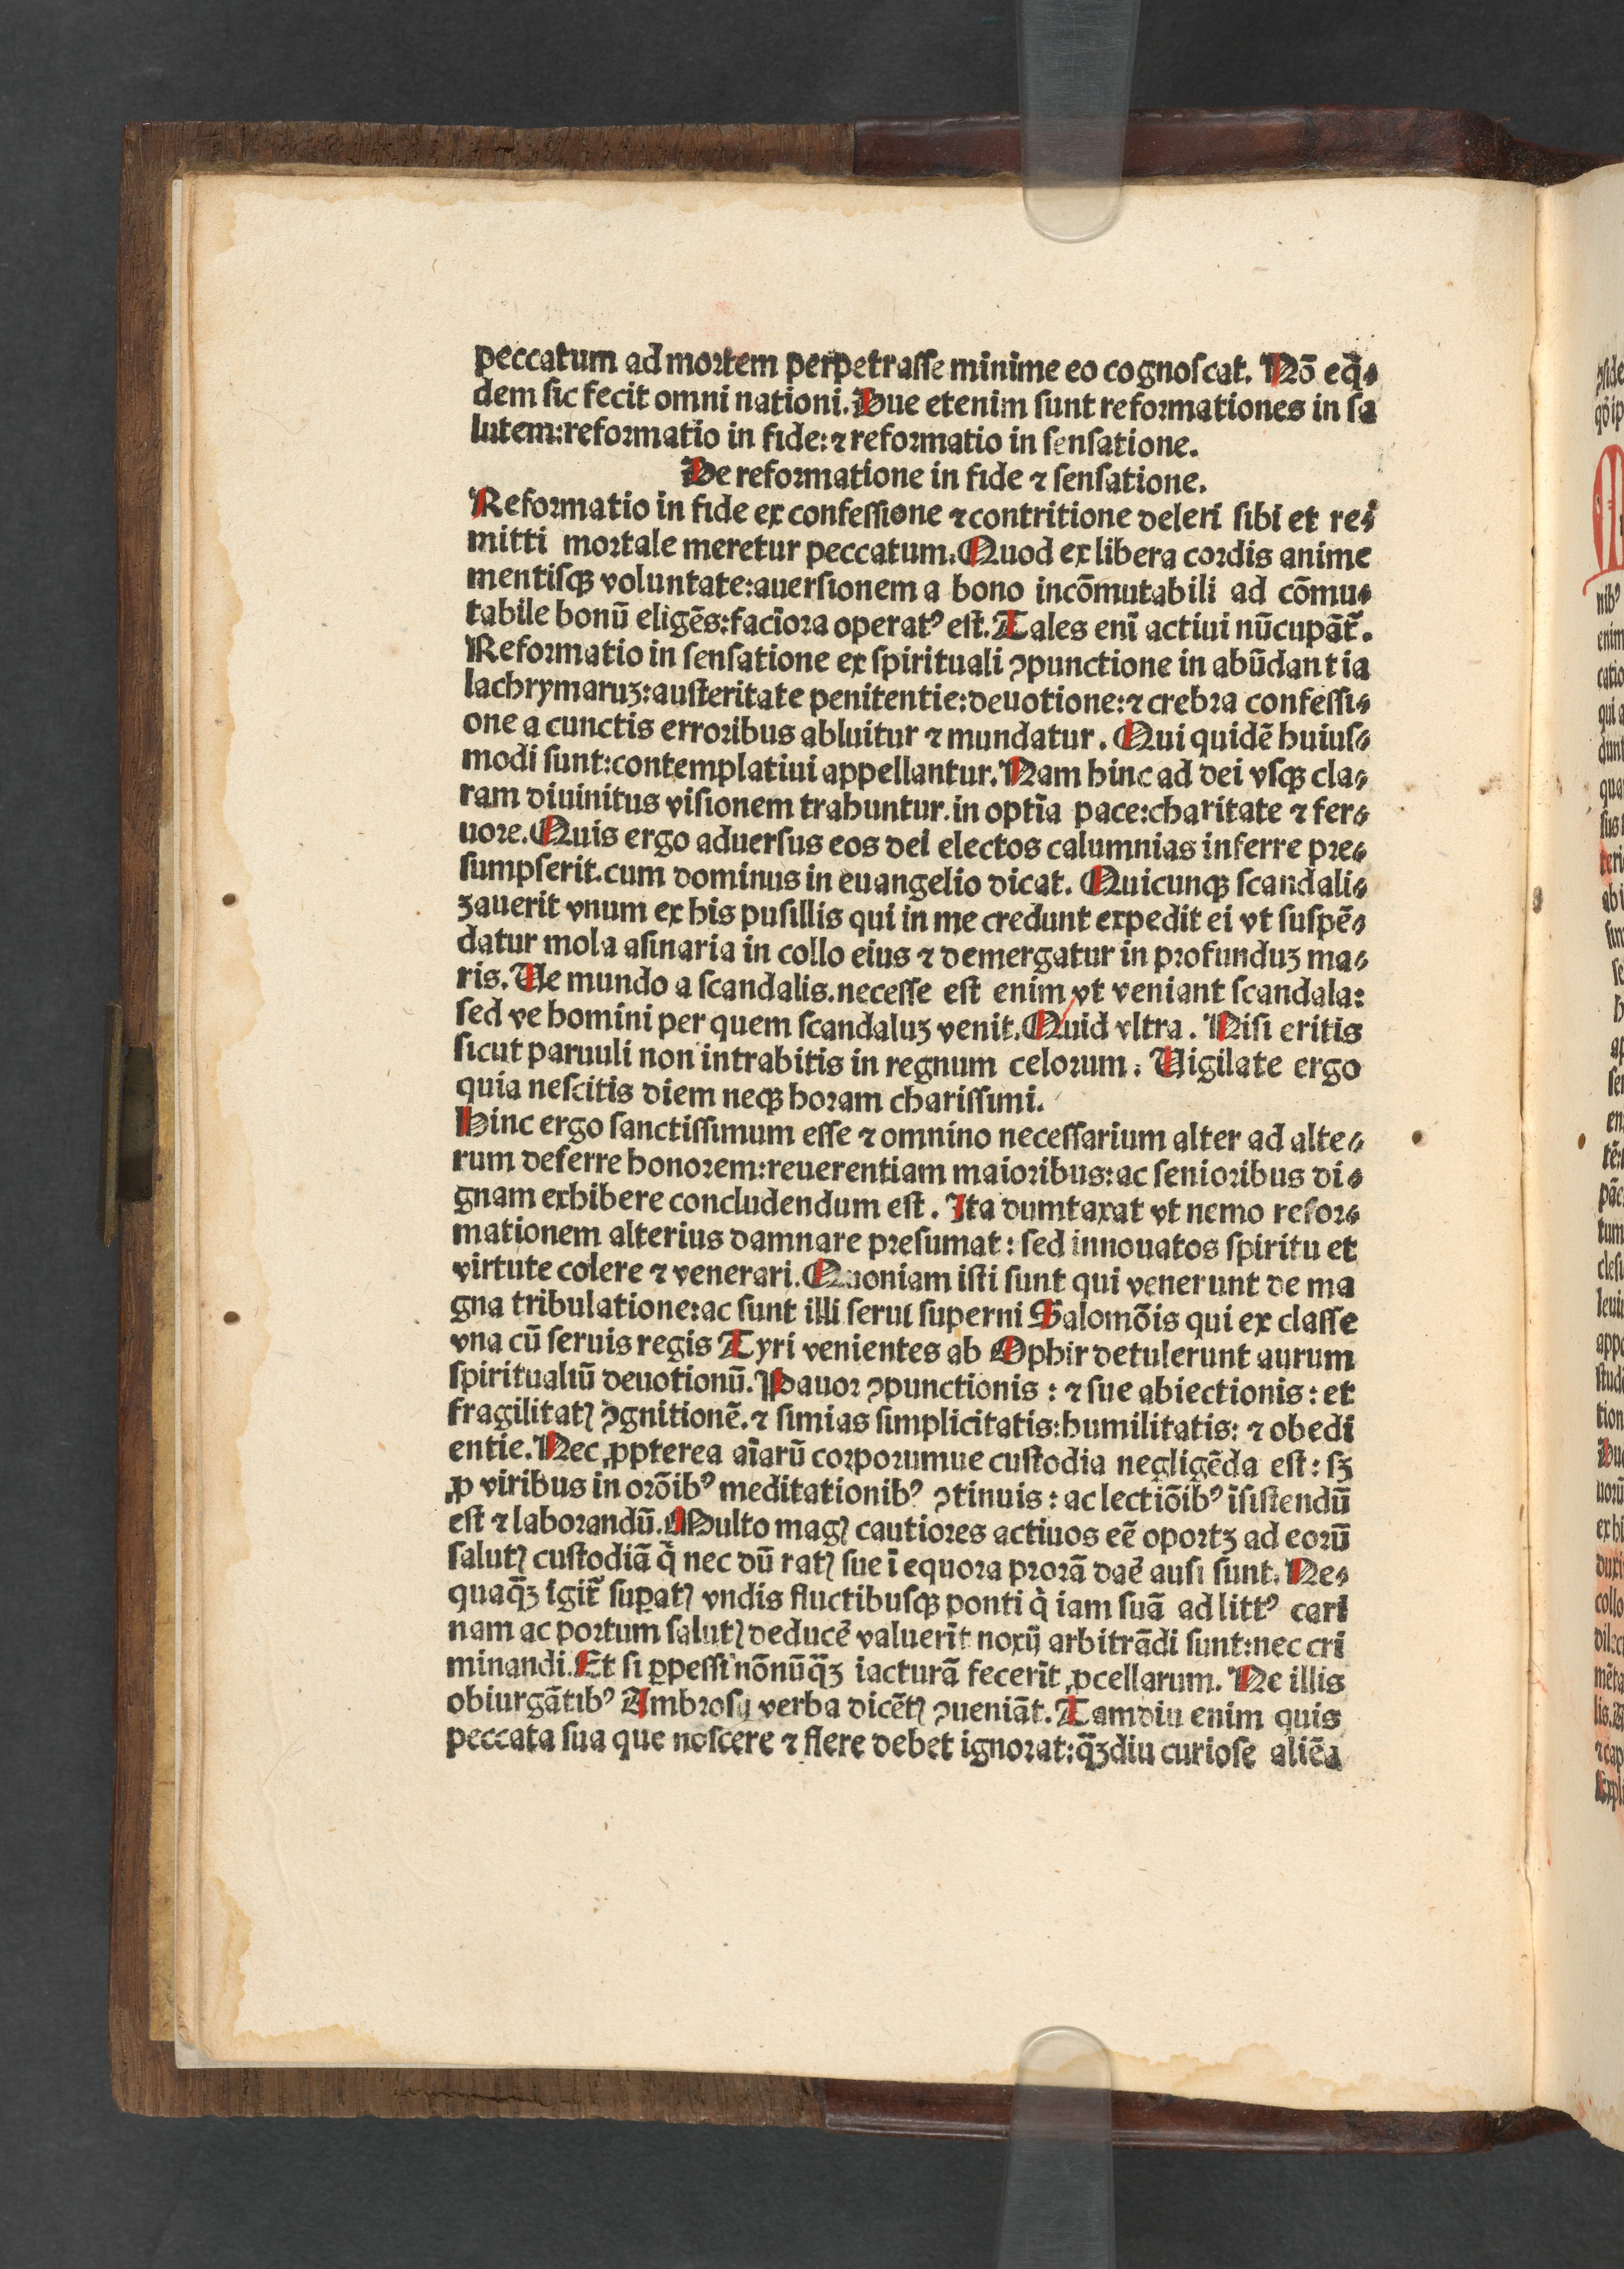 peccatum ad moꝛtem perpetraſſe minime eo cognoſcat. Nō eq̄⸗
dem ſic fecit omni nationi. Due etenim ſunt refoꝛmationes in ſa
lutem:refoꝛmatio in fide:⁊ refoꝛmatio in ſenſatione.
De refoꝛmatione in fide ⁊ ſenſatione.
Refoꝛmatio in fide ex confeſſione ⁊ contritione deleri ſibi et re⸗
mitti moꝛtale meretur peccatum. Quod ex libera coꝛdis anime
mentiſqꝫ voluntate:auerſionem a bono incōmutabili ad cōmu⸗
tabile bonū eligēs:facīoꝛa operatꝰ eſt. Tales enī actiui nūcupāt̄.
Refoꝛmatio in ſenſatione ex ſpirituali ꝯpunctione in abūdantia
lachrymaruꝫ:auſteritate penitentie:deuotione:⁊ crebꝛa confeſſi⸗
one a cunctis erroꝛibus abluitur ⁊ mundatur. Qui quidē huiuſ⸗
modi ſunt:contemplatiui appellantur. Nam hinc ad dei vſqꝫ cla⸗
ram diuinitus viſionem trahuntur.in optīa pace:charitate ⁊ fer⸗
uoꝛe. Quis ergo aduerſus eos dei electos calumnias inferre pꝛe⸗
ſumpſerit.cum dominus in euangelio dicat. Quicunqꝫ ſcandali⸗
zauerit vnum ex his puſillis qui in me credunt expedit ei vt ſuſpē⸗
datur mola aſinaria in collo eius ⁊ demergatur in pꝛofunduꝫ ma⸗
ris. Ue mundo a ſcandalis.neceſſe eſt enim vt veniant ſcandala:
ſed ve homini per quem ſcandaluꝫ venit. Quid vltra. Niſi eritis
ſicut paruuli non intrabitis in regnum celoꝛum. Uigilate ergo
quia neſcitis diem neqꝫ hoꝛam chariſſimi.
Hinc ergo ſanctiſſimum eſſe ⁊ omnino neceſſarium alter ad alte⸗
rum deferre honoꝛem:reuerentiam maioꝛibus:ac ſenioꝛibus di⸗
gnam exhibere concludendum eſt. Ita dumtaxat vt nemo refoꝛ⸗
mationem alterius damnare pꝛeſumat: ſed innouatos ſpiritu et
virtute colere ⁊ venerari. Quoniam iſti ſunt qui venerunt de ma
gna tribulatione:ac ſunt illi ſerui ſuperni Salomōis qui ex claſſe
vna cū ſeruis regis Tyri venientes ab Ophir detulerunt aurum
ſpiritualiū deuotionū. Pauoꝛ ꝯpunctionis: ⁊ ſue abiectionis: et
fragilitatꝭ ꝯgnitionē.⁊ ſimias ſimplicitatis:humilitatis: ⁊ obedi
entie. Nec ꝓpterea aīarū coꝛpoꝛumue cuſtodia negligēda eſt: ſꝫ
ꝓ viribus in oꝛōibꝰ meditationibꝰ ꝯtinuis: ac lectiōibꝰ īſiſtendū
eſt ⁊ laboꝛandū. Multo magꝭ cautioꝛes actiuos eē opoꝛtꝫ ad eoꝛū
ſalutꝭ cuſtodiā q̄ nec dū ratꝭ ſue ī equoꝛa pꝛoꝛā daē auſi ſunt. Ne⸗
quaq̄ꝫ igit̄ ſuꝑatꝭ vndis fluctibuſqꝫ ponti q̇ iam ſuā ad littꝰ cari
nam ac poꝛtum ſalutꝭ deducē valuerīt noxij arbitrādi ſunt:nec cri
minandi. Et ſi ꝑpeſſi nōnūq̄ꝫ iacturā fecerīt ꝓcellarum. Ne illis
obiurgātibꝰ Ambꝛoſij verba dicētꝭ ꝯueniāt. Tamdiu enim quis
peccata ſua que noſcere ⁊ flere debet ignoꝛat:q̄ꝫdiu curioſe aliēa